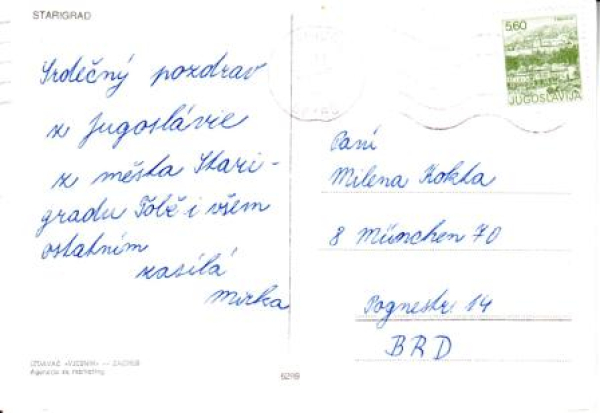 STARIGRAD
Srdečný pozdrav
z Jugoslávie
z města Stari-
gradu Tobě i všem
ostatním
zasílá
Mirka
5.60
JUGOSLAVIJA
Paní
Milena Kokta
8 München 70
Pognestr 14
BRD
IZDAVAČ »VJESNIK« — ZAGREB
Agencija za marketing